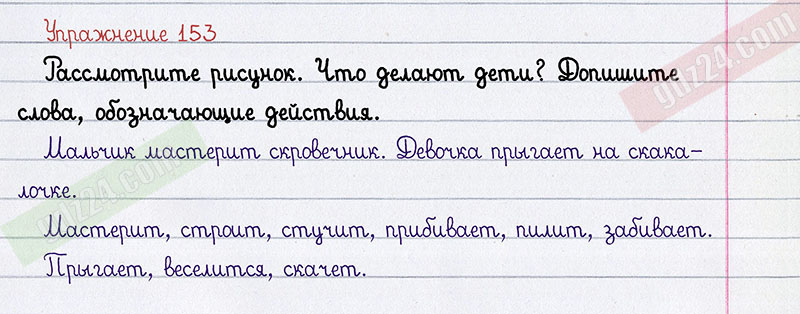 Упражнение 153
Рассмотрите рисунок. Что делают дети? Допишите
слова, обозначающие действия.
Мальчик мастерит скровечник. Девочка прыгает на скака-
лочке.
Мастерит, строит, стучит, прибивает, пилит, забивает.
Прыгает, веселится, скачет.
gdz24.com
gdz24.com